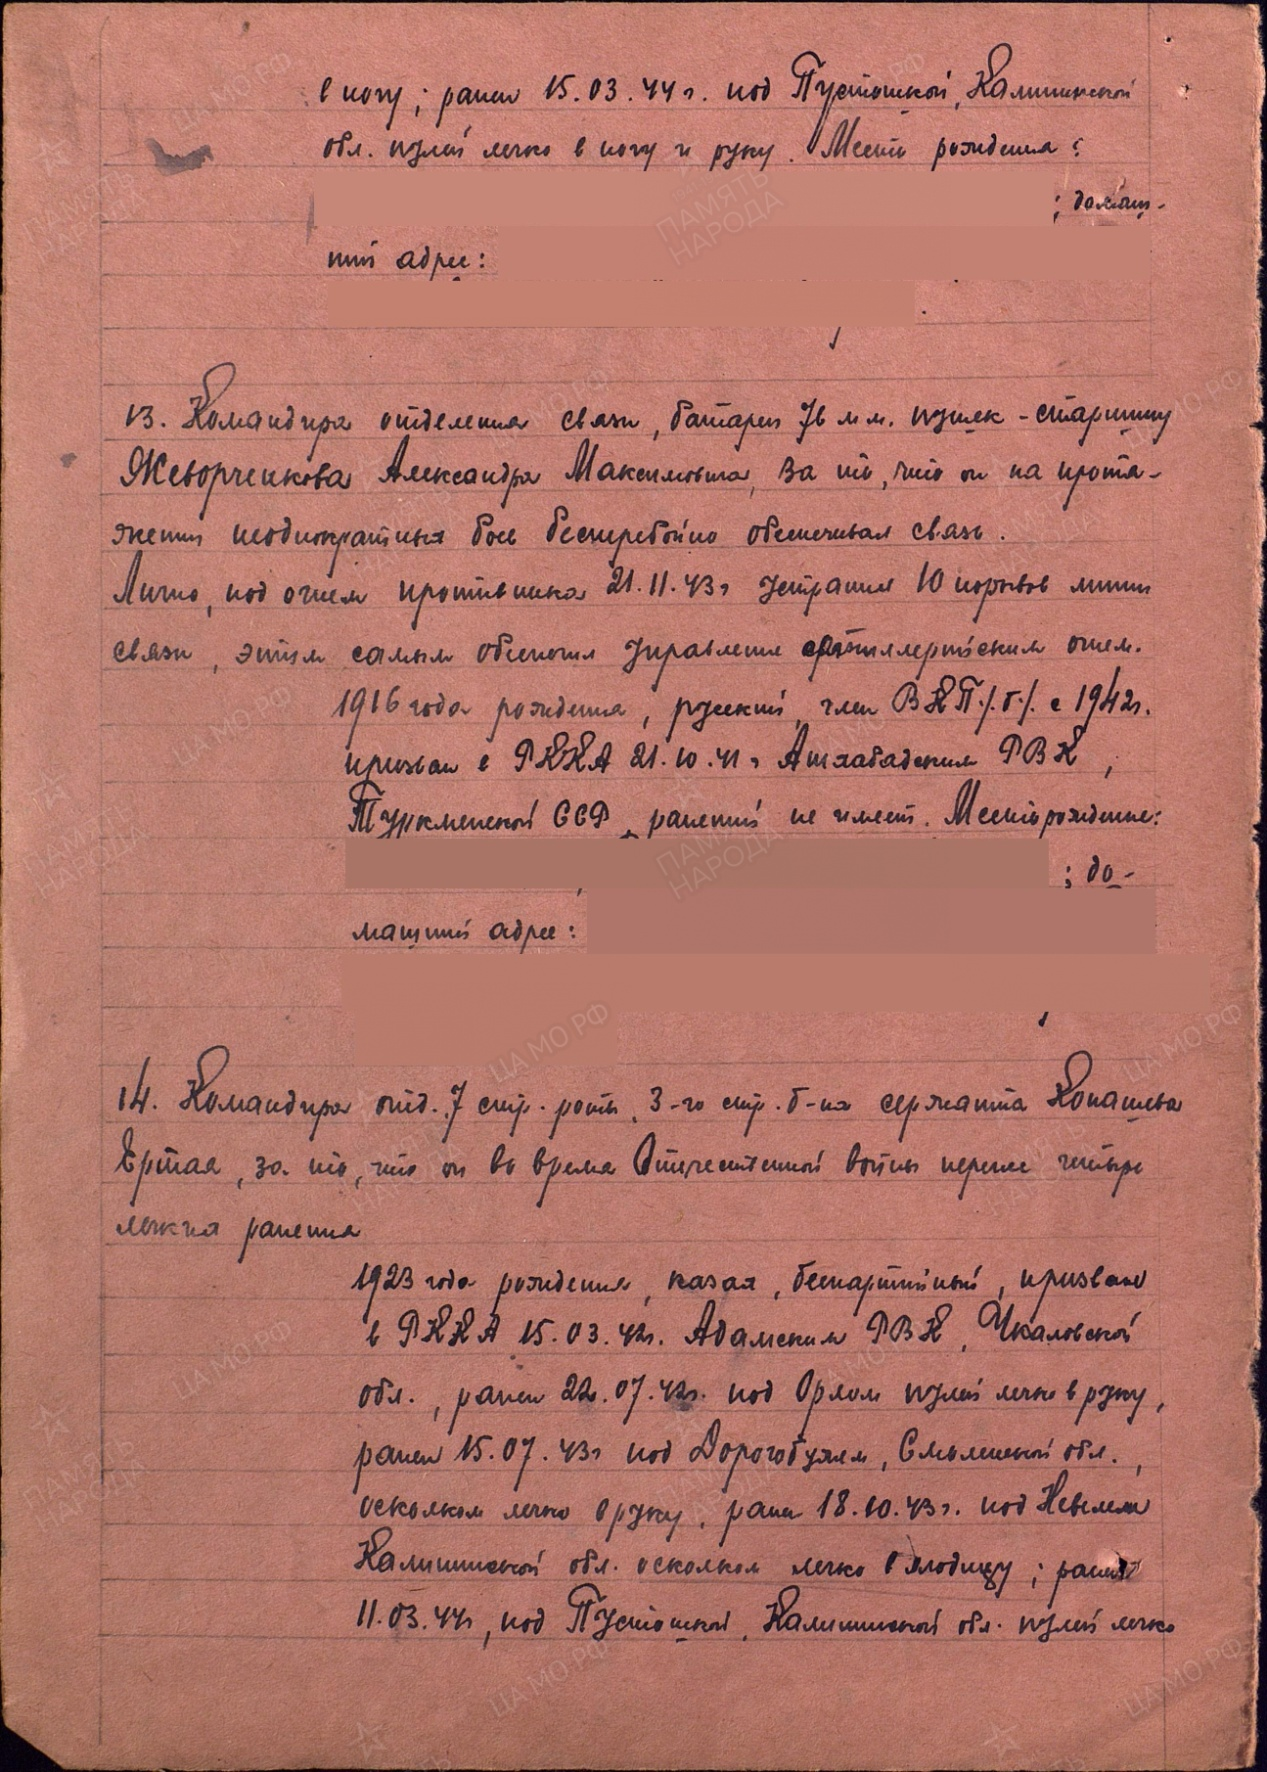 в ногу; ранен 15.03.44 г. под Пустошкой, Калининской
обл. пулей легко в ногу и руку. Место рождения:
; домаш-
ний адрес:
13. Командира отделения связи, батареи 76 м.м. пушек - старшину
Жеворченкова Александра Максимовича, за то, что он на протя-
жении неоднократных боев бесперебойно обеспечивал связь.
Лично, под огнем противника 21.11.43 г устранил 10 порывов линии
связи, этим самым обеспечил управление артиллерийским огнем.
1916 года рождения, русский, член ВКП/б/ с 1942 г.
призван в РККА 21.10.41 г Ашхабадским РВК,
Туркменской ССР, ранений не имеет. Место рождение:
; до-
машний адрес:
14. Командира отд. 7 стр. роты, 3-го стр. б-на сержанта Копашева
Ертая, за то, что он во время Отечественной войны перенес четыре
легких ранения
1923 года рождения, казах, беспартийный, призван
в РККА 15.03.42 г. Адамским РВК, Чкаловской
обл., ранен 22.07.42 г. под Орлом пулей легко в руку,
ранен 15.07.43 г под Дорогобужем, Смоленской обл.,
осколком легко в руку, ранен 18.10.43 г. под Невелем
Калининской обл. осколком легко в ягодицу; ранен
11.03.44 г, под Пустошкой, Калининской обл. пулей легко
ПАМЯТЬ НАРОДА
ЦА МО РФ